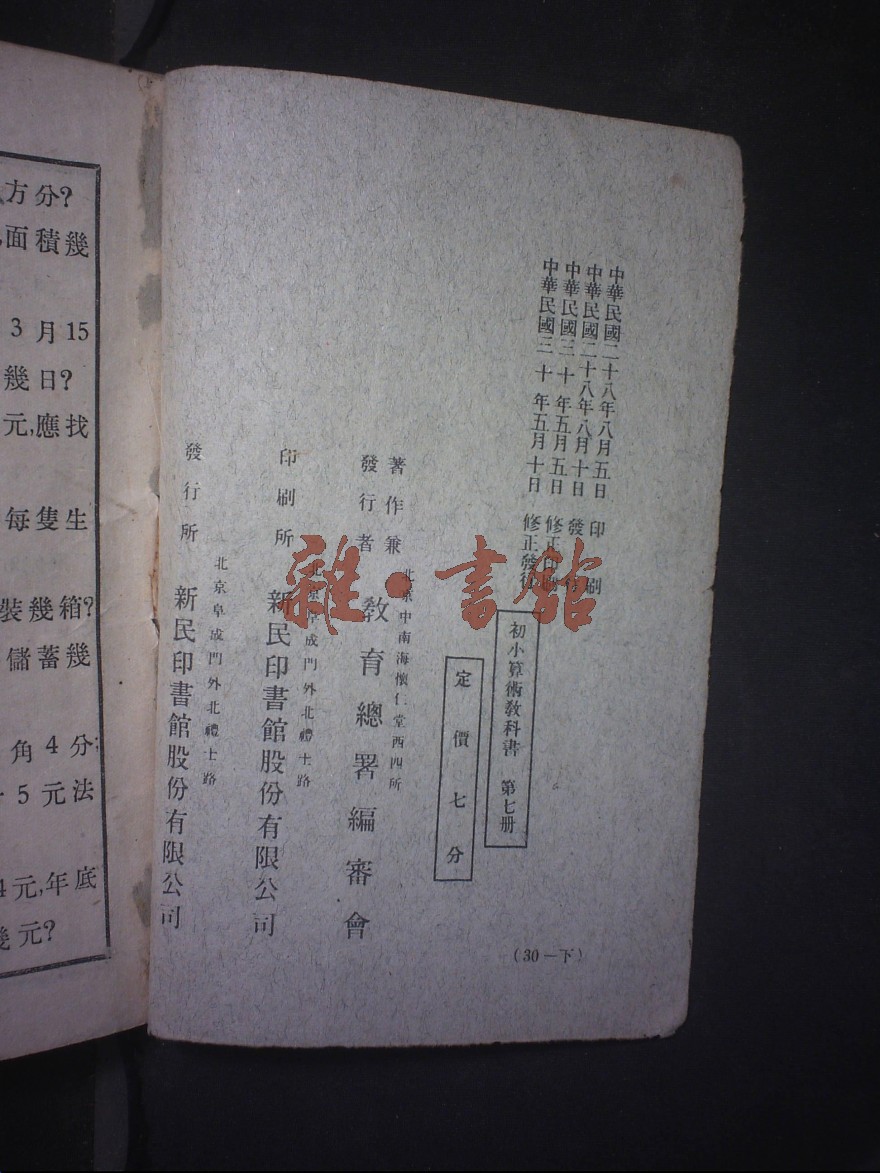 中華民國二十八年八月五日 印刷
中華民國二十八年八月十日 發行
中華民國三十年五月五日 修正印刷
中華民國三十年五月十日 修正發行
初小算術教科書 第七册
定價七分
著作兼
發行者
北京中南海懷仁堂西四所
教育總署編審會
印刷所
北京阜成門外北禮士路
新民印書館股份有限公司
發行所
北京阜成門外北禮士路
新民印書館股份有限公司
(30—下)
雜·書館
方分?
面積幾
3月15
幾日?
元,應找
每隻生
裝幾箱?
儲蓄幾
角4分;
5元法
4元,年底
幾元?